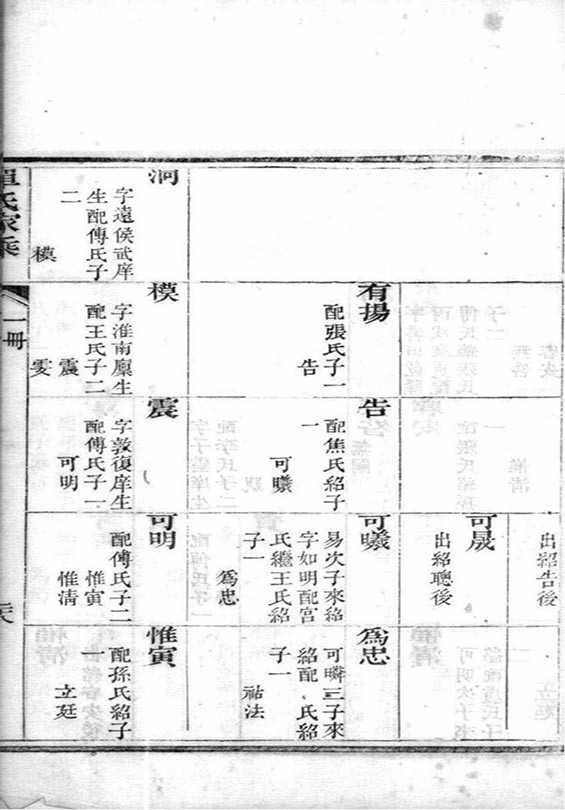 字遠侯武庠
生配傅氏子
二
模
有揚
配張氏子一
告
模
字淮南廩生
配王氏子二
震
雯
告
配焦氏紹子
一
可曦
震
字敦復庠生
配傅氏子一
可明
出紹告後
可晟
出紹聰後
可曦
易次子來紹
字如明配宫
氏繼王氏紹
子一
爲忠
可明
配傅氏子二
惟寅
惟清
爲忠
可瞵三子來
紹配 氏紹
子一
祜法
惟寅
配孫氏紹子
一
立廷
單氏家乘
一冊